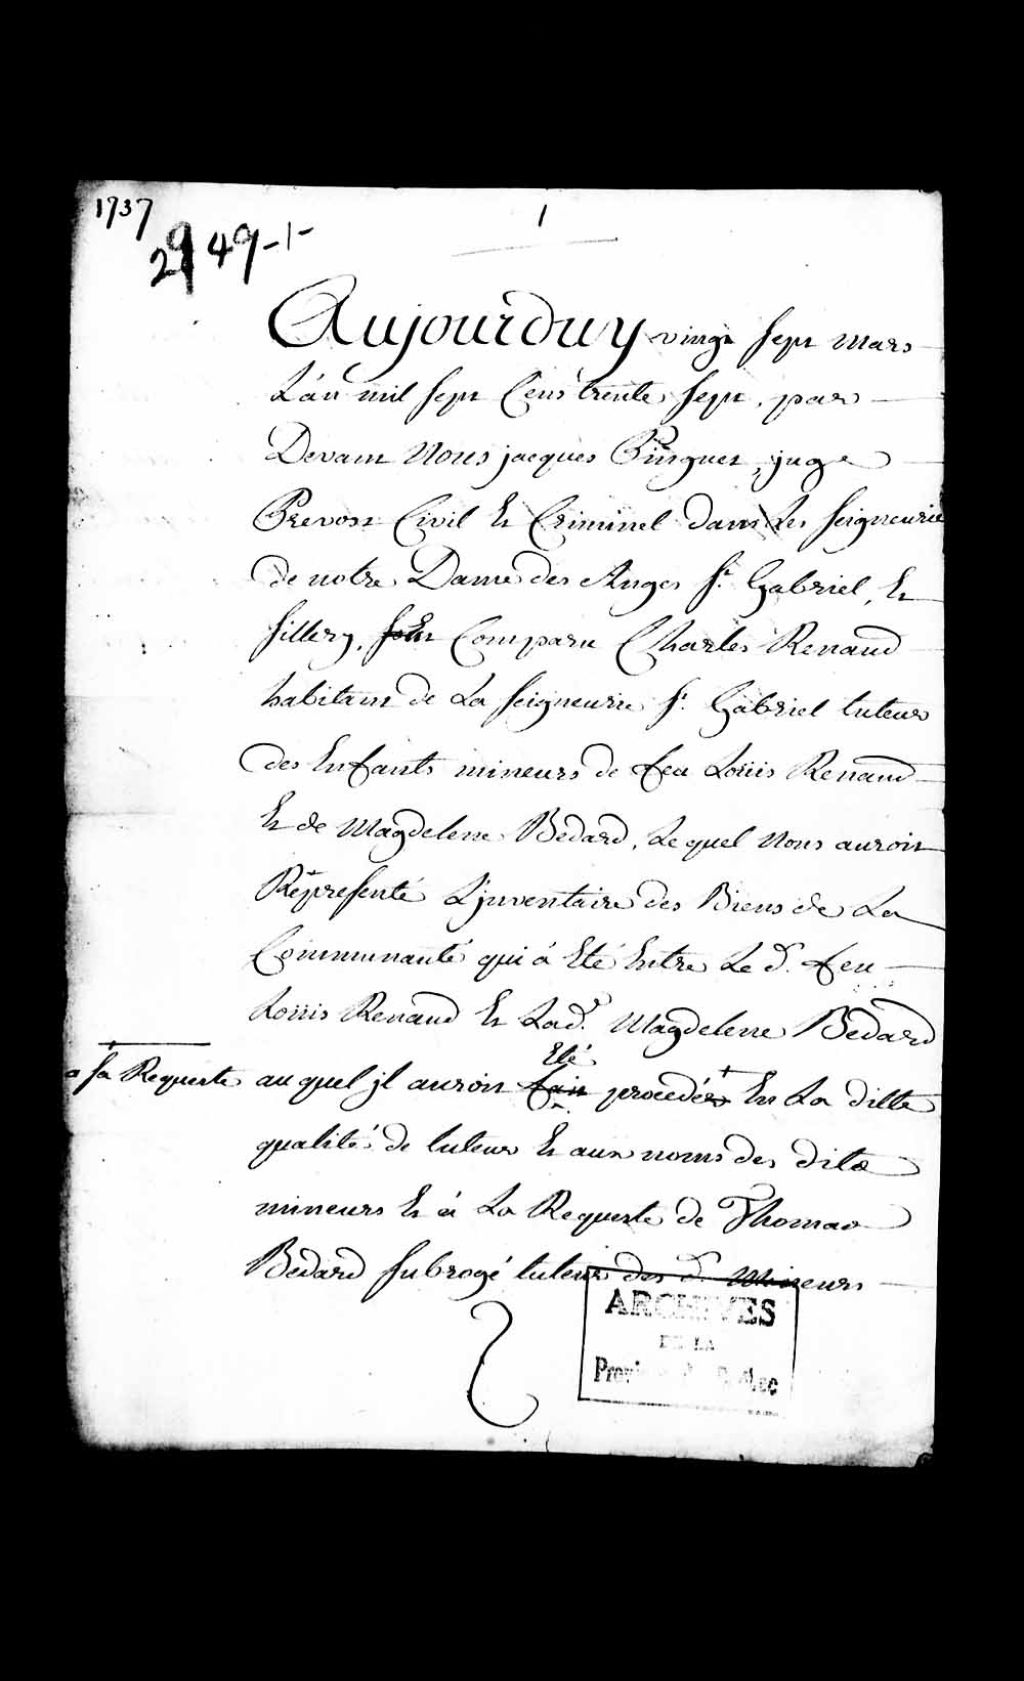 1737
2949-1-
1
Aujourduy vingt sept mars
L'an mil sept Cens trente sept, par
Devant Nous jacques Pinguet, juge
Prevost Civil Et Criminel dans Les seigneurie
de notre Dame des Anges St. Gabriel, Et
sillery, Comparu Charles Renaud
habitant de La seigneurie St. Gabriel tuteur
des Enfants mineurs de feu Louis Renaud
Et de Magdelene Bedard, Lequel Nous auroit
Représenté L'jnventaire des Biens de La
Communauté qui à Eté Entre Le d. feu
Louis Renaud Et Lad. Magdelene Bedard
Eté
a sa Requeste auquel jl auroit fait procedér + En La ditte
qualité de tuteur Et aux noms des dits
mineurs Et à La Requeste de Thomas
Bedard subrogé tuteur des d. Mineurs
ARCHIVES
DE LA
Province de Quebec